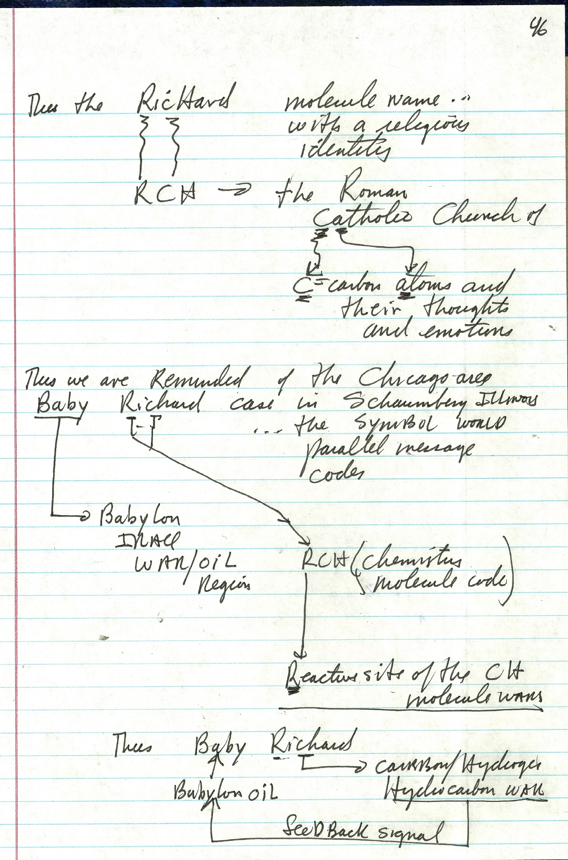 46
Thus the Richard molecule name ...
with a religious
identity
RCH → the Roman
Catholic Church of
C = carbon atoms and
their thoughts
and emotions
Thus we are Reminded of the Chicago area
Baby Richard case in Schaumberg Illinois
... the SYMBOL WORLD
parallel message
codes
Babylon
IRAQ
WAR/OIL
Region
RCH (Chemistry
molecule code)
Reactive site of the CH
molecule WARS
Thus Baby Richard
Carbon/Hydrogen
Babylon OIL Hydrocarbon WAR
SeeDBack signal